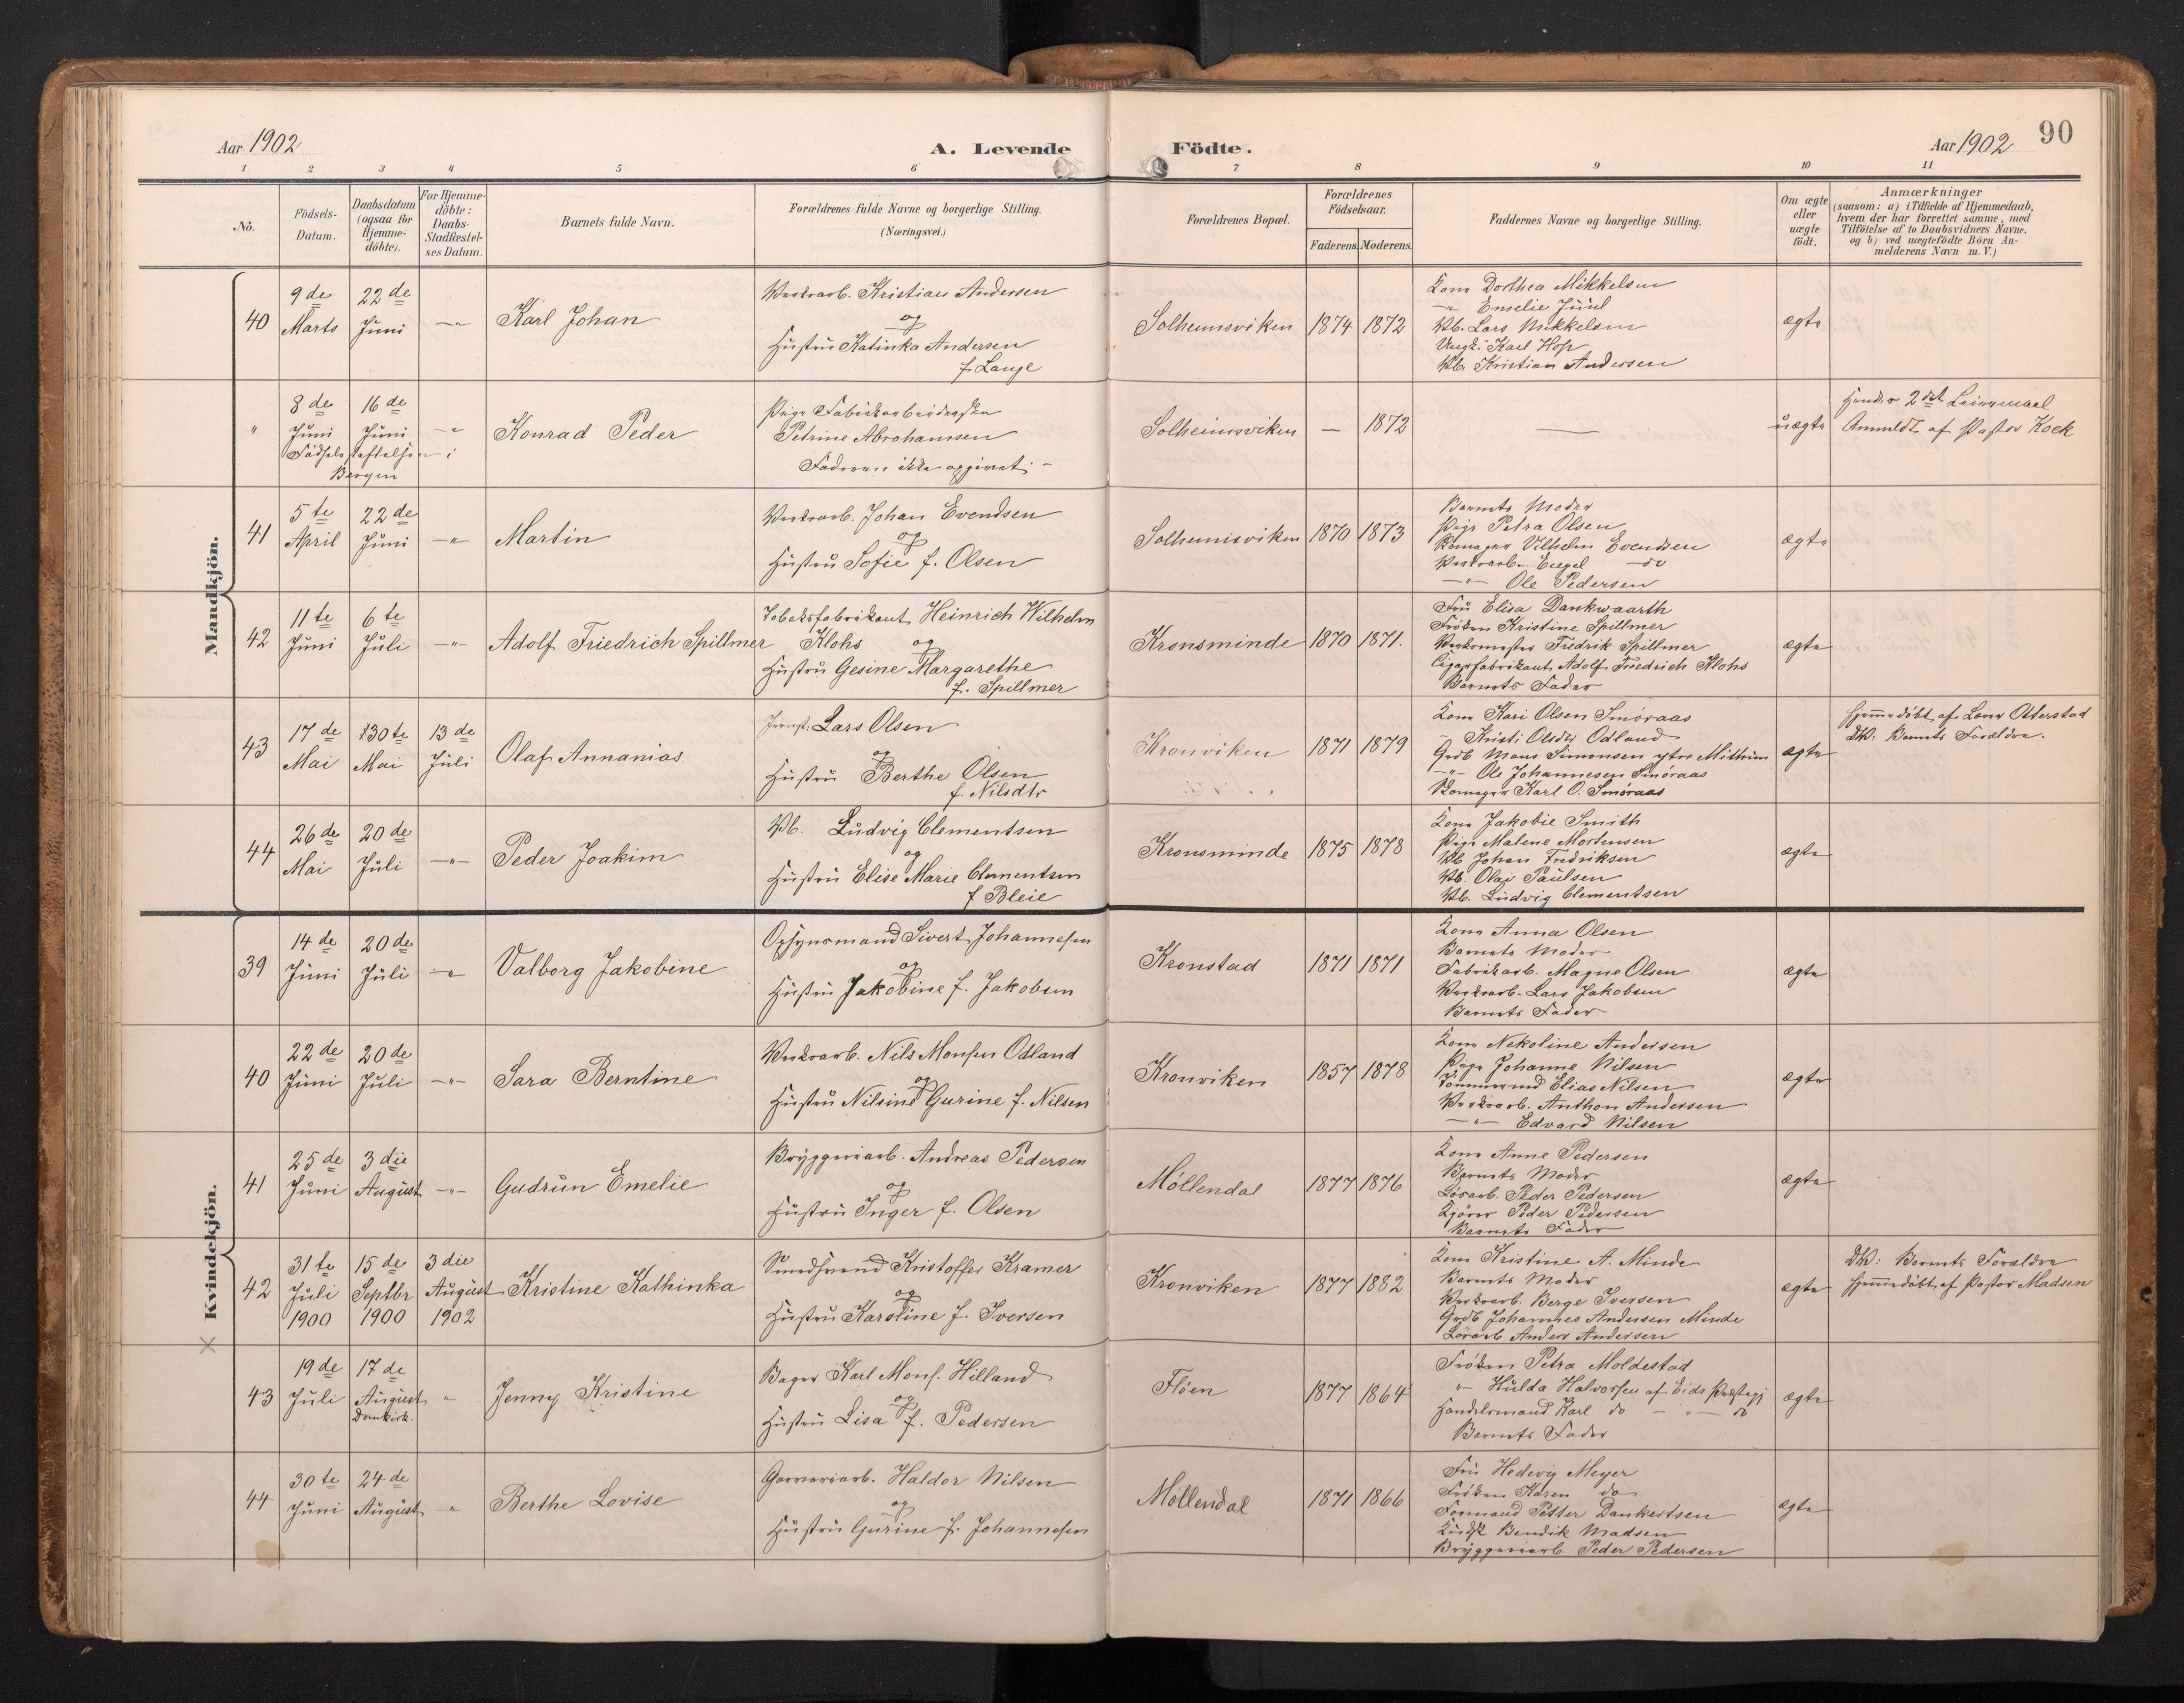 Aar 1902
A. Levende Födte.
Aar 1902 90
1 2 3 4 5 6 7 8 9 10 11
No.
Födsels-
Datum.
Daabsdatum
(ogsaa for
Hjemme-
döbte).
For Hjemme-
döbte:
Daabs-
Stadfæstel-
ses Datum.
Barnets fulde Navn.
Forældrenes fulde Navne og borgerlige Stilling.
(Næringsvei.)
Forældrenes Bopæl.
Forældrenes
Födselsaar.
Faderens. Moderens.
Faddernes Navne og borgerlige Stilling.
Om ægte
eller
uægte
født.
Anmærkninger
(saasom: a) i Tilfælde af Hjemmedaab,
hvem der har forrettet samme, med
Tilföielse af to Daabsvidners Navne.
og b) ved uægtefödte Börn An-
melderens Navn m. V.)
Mandkjön.
40
9de
Marts
22de
Juni
-"-
Karl Johan
Værkarb. Kristian Andersen
og
Hustru Katinka Andersen
f. Lange
Solheimsviken
1874
1872
Kone Dorthea Mikkelsen
-"- Emelie Juul
Vb. Lars Mikkelsen
Ungk. Karl Hop
Vb. Kristian Andersen
ægte
"
8de
Juni
16de
Juni
Födselsstiftelsen i
Bergen
-"-
Konrad Peder
Pige Fabrikarbeiderske
Petrine Abrahamsen
Faderen ikke opgivet.-
Solheimsviken
—
1872
—
uægte
Hendes 2det Leiermaal
Anmeldt af Pastor Kock
41
5te
April
22de
Juni
-"-
Martin
Værkarb. Johan Evendsen
og
Hustru Sofie f. Olsen
Solheimsviken
1870
1873
Barnets Moder
Pige Petra Olsen
Skomager Vilhelm Evendsen
Værkarb. Engel do
-"- Ole Pedersen
ægte
42
11te
Juni
6te
Juli
-"-
Adolf Friedrich Spillmer
Tobaksfabrikant Heinrich Wilhelm
Klohs og
Hustru Gesine Margarethe
f. Spillmer
Kronsminde
1870
1871.
Fru Elisa Dankwaarth
Fröken Kristine Spillmer
Værkmester Fredrik Spillmer
Cigarfabrikant Adolf Friedrich Klohs
Barnets Fader
ægte
43
17de
Mai
30te
Mai
13de
Juli
Olaf Annanias
Jernst. Lars Olsen
og
Hustru Berthe Olsen
f. Nilsdtr
Kronviken
1871
1879
Kone Kari Olsen Smöraas
- Kristi Olsdtr Odland
Grdb Mons Simonsen ytre Midthun
-"- Ole Johannesen Smöraas
Skomager Karl O. Smöraas
ægte
Hjemmedöbt af Lærer Otterstad
DV: Barnets Forældre.
44
26de
Mai
20de
Juli
-"-
Peder Joakim
Vb. Ludvig Clementsen
og
Hustru Elise Marie Clementsen
f Bleie
Kronsminde
1875
1878
Kone Jakobie Smith
Pige Malene Mortensen
Vb Johan Fredriksen
Vb. Olai Paulsen
Vb. Ludvig Clementsen
ægte
Kvindekjön.
39
14de
Juni
20de
Juli
-"-
Valborg Jakobine
Opsynsmand Sivert Johannesen
og
Hustru Jakobine f. Jakobsen
Kronstad
1871
1871
Kone Anna Olsen
Barnets Moder
Fabrikarb. Magne Olsen
Værkarb. Lars Jakobsen
Barnets Fader
ægte
40
22de
Juni
20de
Juli
-"-
Sara Berntine
Værkarb. Nils Monsen Odland
og
Hustru Nilsine Gurine f. Nilsen
Kronviken
1857
1878
Kone Nekoline Andersen
Pige Johanne Nilsen
Tömmermd Elias Nilsen
Værkarb. Anthon Andersen
-"- Edvard Nilsen
ægte
41
25de
Juni
3die
August
-"-
Gudrun Emelie
Bryggeriarb. Andreas Pedersen
og
Hustru Inger f. Olsen
Möllendal
1877
1876
Kone Anne Pedersen
Barnets Moder
Lösarb. Peder Pedersen
Kjörer Peder Pedersen
Barnets Fader
ægte
42
31te
Juli
1900
15de
Septbr
1900
3die
August
1902
Kristine Kathinka
Smedsvend Kristoffer Kramer
og
Hustru Karoline f. Iversen
Kronviken
1877
1882
Kone Kristine A. Minde
Barnets Moder
Værkarb. Berge Iversen
Grdb Johannes Andersen Minde
Lösarb Anders Andersen
ægte
DV: Barnets Forældre
Hjemmedöbt af Pastor Madsen
×
43
19de
Juli
17de
August
Domkirk.
"
Jenny Kristine
Bager Karl Mons. Hilland
og
Hustru Lisa f. Pedersen
Flöen
1877
1864
Fröken Petra Moldestad
"- Hulda Halvorsen af Eids Præstegj
Handelsmand Karl do -"- do
Barnets Fader
ægte
44
30te
Juni
24de
August
"
Berthe Lovise
Garveriarb. Haldor Nilsen
og
Hustru Gurine f. Johannesen
Möllendal
1871
1866
Fru Hedevig Meyer
Fröken Karen do
Formand Petter Dankertsen
Kudsk Bendik Madsen
Bryggeriarb. Peder Pedersen
ægte